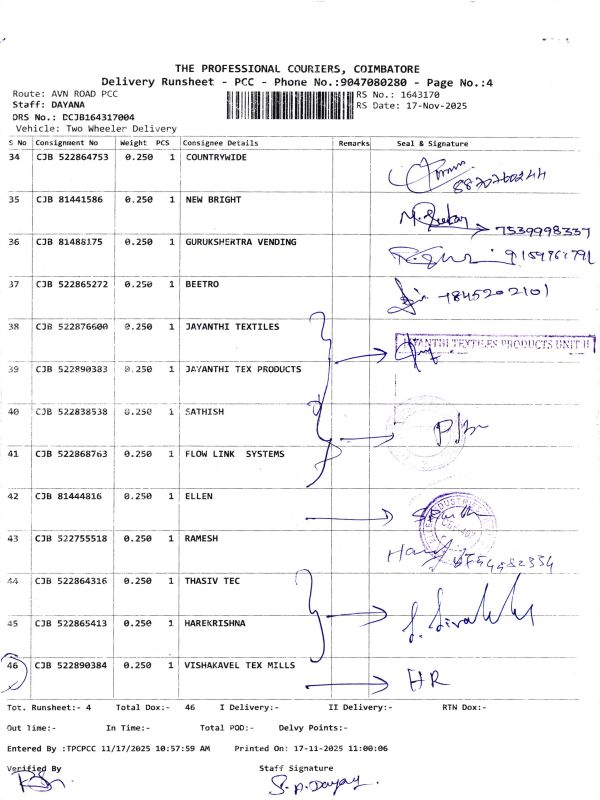 THE PROFESSIONAL COURIERS, COIMBATORE
Delivery Runsheet - PCC - Phone No.:9047080280 - Page No.:4
Route: AVN ROAD PCC RS No.: 1643170
Staff: DAYANA RS Date: 17-Nov-2025
DRS No.: DCJB164317004
Vehicle: Two Wheeler Delivery
S No Consignment No Weight PCS Consignee Details Remarks Seal & Signature
34 CJB 522864753 0.250 1 COUNTRYWIDE
8870760244
35 CJB 81441586 0.250 1 NEW BRIGHT
7539998337
36 CJB 81488175 0.250 1 GURUKSHERTRA VENDING
9159761791
37 CJB 522865272 0.250 1 BEETRO
7845202101
38 CJB 522876600 0.250 1 JAYANTHI TEXTILES
JAYANTHI TEXTILES PRODUCTS UNIT II
39 CJB 522890383 0.250 1 JAYANTHI TEX PRODUCTS
40 CJB 522838538 0.250 1 SATHISH
41 CJB 522868763 0.250 1 FLOW LINK SYSTEMS
42 CJB 81444816 0.250 1 ELLEN
43 CJB 522755518 0.250 1 RAMESH
44 CJB 522864316 0.250 1 THASIV TEC
45 CJB 522865413 0.250 1 HAREKRISHNA
46 CJB 522890384 0.250 1 VISHAKAVEL TEX MILLS
HR
Tot. Runsheet:- 4 Total Dox:- 46 I Delivery:- II Delivery:- RTN Dox:-
Out Time:- In Time:- Total POD:- Delvy Points:-
Entered By :TPCPCC 11/17/2025 10:57:59 AM Printed On: 17-11-2025 11:00:06
Verified By Staff Signature
S. P. Dayay.